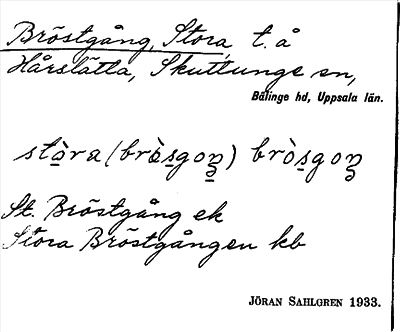 Bröstgång, Stora, t. å
Hårslätta, Skuttunge sn,
Bälinge hd, Uppsala län.
stòra (bròsgoŋ) bròsgoŋ
St. Bröstgång ek
Stora Bröstgången kb
JÖRAN SAHLGREN 1933.